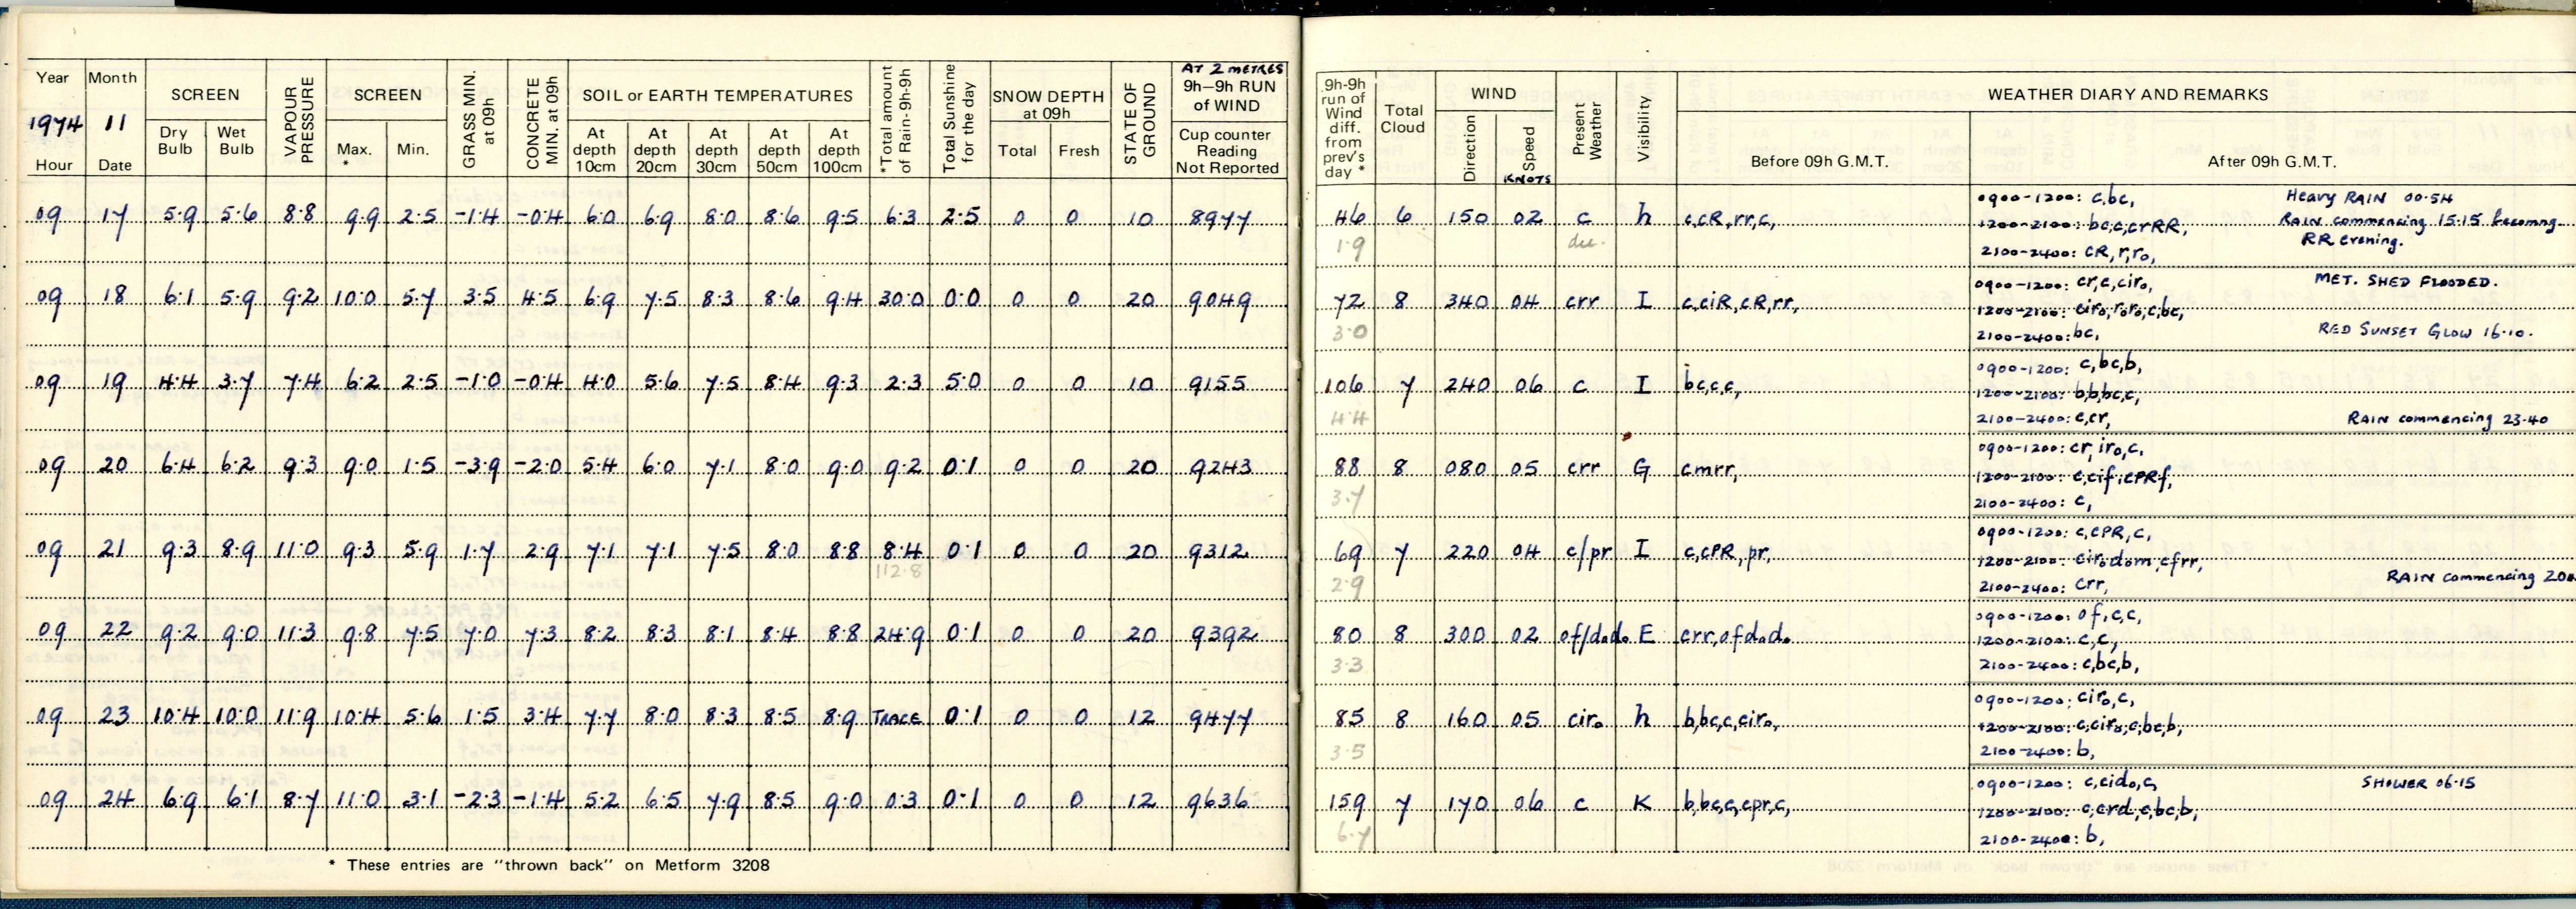 Year Month SCREEN VAPOUR PRESSURE SCREEN GRASS MIN. at 09h CONCRETE MIN. at 09h SOIL or EARTH TEMPERATURES *Total amount of Rain-9h-9h Total Sunshine for the day SNOW DEPTH at 09h STATE OF GROUND AT 2 METRES 9h–9h RUN of WIND
1974 11
Hour Date Dry Bulb Wet Bulb Max. * Min. At depth 10cm At depth 20cm At depth 30cm At depth 50cm At depth 100cm Total Fresh Cup counter Reading Not Reported
09 17 5.9 5.6 8.8 9.9 2.5 -1.4 -0.4 6.0 6.9 8.0 8.6 9.5 6.3 2.5 0 0 10 8977
09 18 6.1 5.9 9.2 10.0 5.7 3.5 4.5 6.9 7.5 8.3 8.6 9.4 30.0 0.0 0 0 20 9049
09 19 4.4 3.7 7.4 6.2 2.5 -1.0 -0.4 4.0 5.6 7.5 8.4 9.3 2.3 5.0 0 0 10 9155
09 20 6.4 6.2 9.3 9.0 1.5 -3.9 -2.0 5.4 6.0 7.1 8.0 9.0 9.2 0.1 0 0 20 9243
09 21 9.3 8.9 11.0 9.3 5.9 1.7 2.9 7.1 7.1 7.5 8.0 8.8 8.4 0.1 0 0 20 9312
112.8
09 22 9.2 9.0 11.3 9.8 7.5 7.0 7.3 8.2 8.3 8.1 8.4 8.8 24.9 0.1 0 0 20 9392
09 23 10.4 10.0 11.9 10.4 5.6 1.5 3.4 7.7 8.0 8.3 8.5 8.9 TRACE 0.1 0 0 12 9477
09 24 6.9 6.1 8.7 11.0 3.1 -2.3 -1.4 5.2 6.5 7.9 8.5 9.0 0.3 0.1 0 0 12 9636
* These entries are "thrown back" on Metform 3208
9h-9h run of Wind diff. from prev's day * Total Cloud WIND Present Weather Visibility WEATHER DIARY AND REMARKS
Direction Speed KNOTS Before 09h G.M.T. After 09h G.M.T.
0900-1200: c,bc, Heavy RAIN 00.54
46 6 150 02 c h c,cR,rr,c, 1200-2100: bc,c,crRR, RAIN commencing 15.15 becoming
1.9 dec. RR evening.
2100-2400: cR,r,r₀,
0900-1200: cr,c,cir₀, MET. SHED FLOODED.
72 8 340 04 crr I c,ciR,cR,rr, 1200-2100: cir₀,r₀r₀,c,bc,
3.0 2100-2400: bc, RED SUNSET GLOW 16.10.
0900-1200: c,bc,b,
106 7 240 06 c I bc,c,c, 1200-2100: b,b,bc,c,
4.4 2100-2400: c,cr, RAIN commencing 23.40
0900-1200: cr,ir₀,c,
88 8 080 05 crr G cmrr, 1200-2100: c,cif,cPRf,
3.7 2100-2400: c,
0900-1200: c,cPR,c,
69 7 220 04 c/pr I c,cPR,pr, 1200-2100: cir₀d₀m,cfrr,
2.9 2100-2400: crr, RAIN commencing
0900-1200: of,c,c,
80 8 300 02 of/d₀d₀ E crr,ofd₀d₀ 1200-2100: c,c,
3.3 2100-2400: c,bc,b,
0900-1200: cir₀,c,
85 8 160 05 cir₀ h b,bc,c,cir₀, 1200-2100: c,cir₀,c,bc,b,
3.5 2100-2400: b,
0900-1200: c,cid₀,c, SHOWER 06.15
159 7 170 06 c K b,bc,c,cpr,c, 1200-2100: c,crd,c,bc,b,
6.7 2100-2400: b,